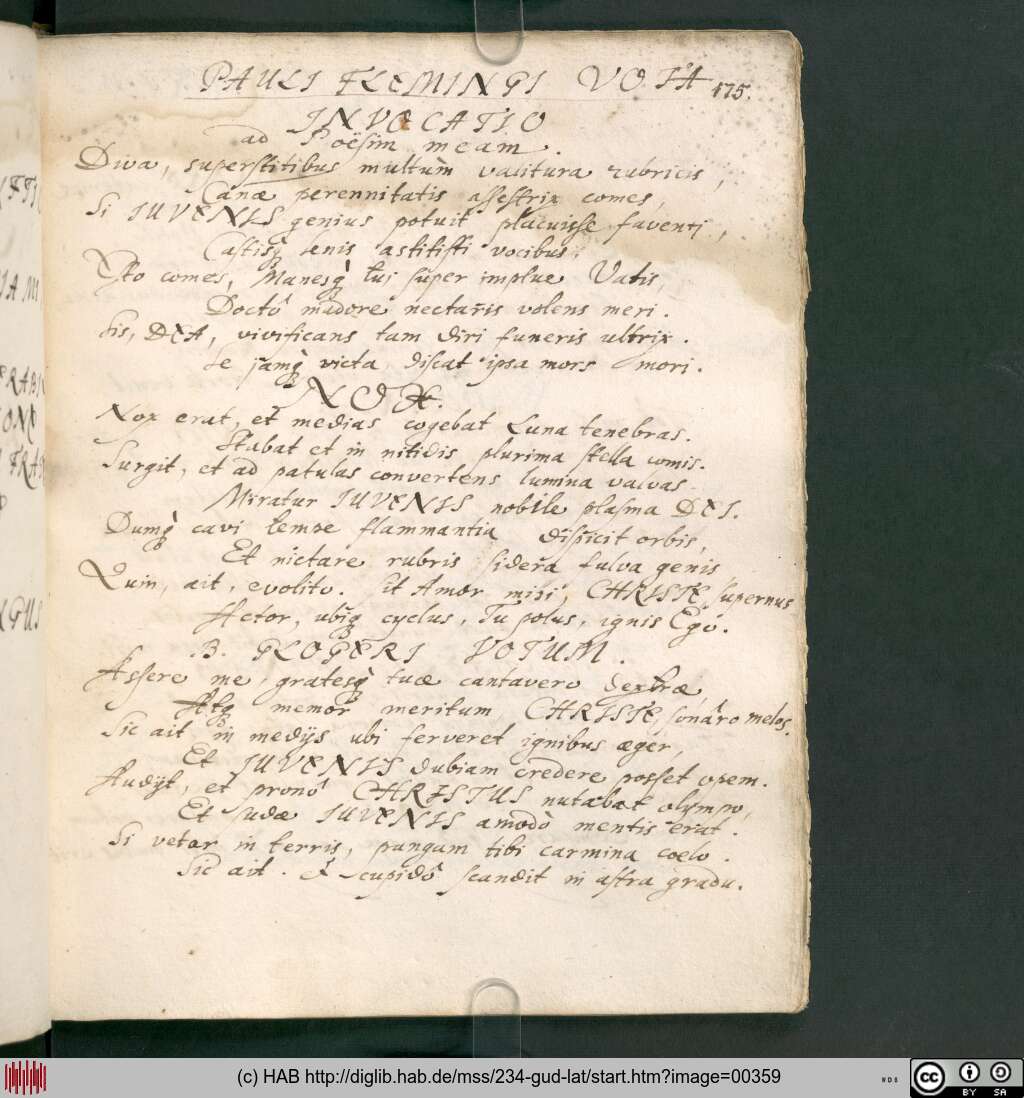 PAULI FLEMINGI VOTA
175.
INVOCATIO
ad Poësim meam.
Diva, superstitibus multùm valitura rubricis,
Canæ perennitatis assestrix comes,
Si IUVENIS genius potuit placuisse faventi,
Castisq̀ senis astitisti vocibus:
Ysto comes, Manesq̀ tui super implue Vatis,
Doctô madore nectaris volens meri.
Sis, DEA, vivificans tam diri funeris ultrix.
Te jamq̀ victa discat ipsa mors mori.
NOX.
Nox erat, et medias cogebat Luna tenebras.
Stabat et in nitidis plurima stella comis.
Surgit, et ad patulas convertens lumina valvas
Miratur IUVENIS nobile plasma DEI.
Dumq̀ cavi temne flammantia dispicit orbis,
Et nictare rubris sidera fulva genis
Quin, ait, evolito. sit Amor mihi, CHRISTE, supernus
Actor, ubiq̀ cyclus, Tu polus, ignis Egó.
B. GLOGERI VOTUM.
Assere me, gratesq̀ tuæ cantavero dextræ,
Atq̀ memor meritum, CHRISTE, sonâro melos.
Sic ait in medijs ubi ferveret ignibus æger,
Et IUVENIS dubiam credere posset opem.
Audijt, et pronô CHRISTUS nutabat olympo,
Et sudæ IUVENIS amodò mentis erat.
Si vetor in terris, pangam tibi carmina coelo.
Sic ait. È cupidô scandit in astra gradu.
(c) HAB http://diglib.hab.de/mss/234-gud-lat/start.htm?image=00359
cc BY SA